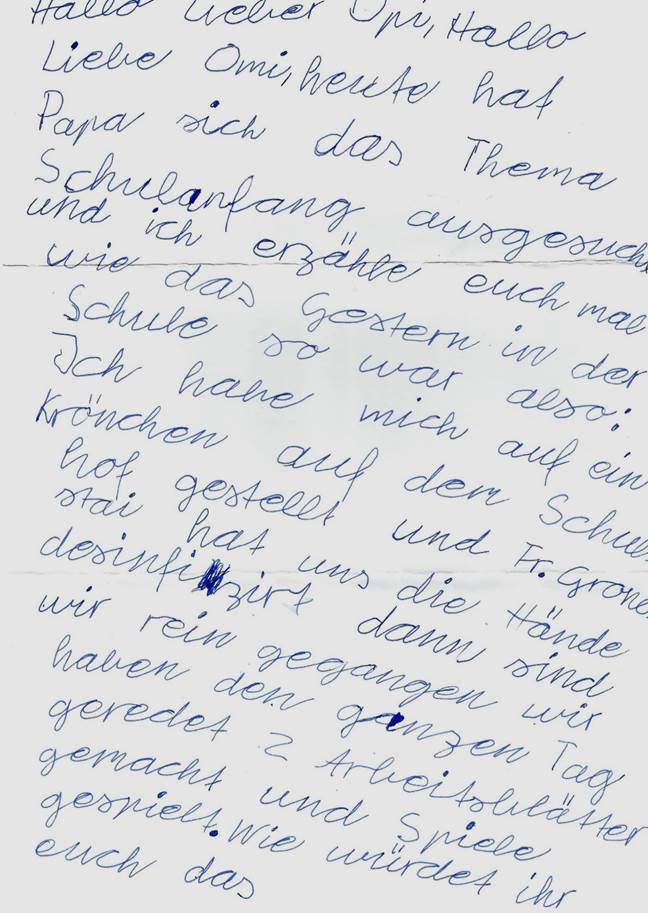 Hallo lieber Opi, Hallo
Liebe Omi, heute hat
Papa sich das Thema
Schulanfang ausgesucht
und ich erzähle euch mal
wie das Gestern in der
Schule so war also:
Ich habe mich auf ein
Krönchen auf dem Schul
hof gestellt und Fr. Grone
stai hat uns die Hände
desinfizirt dann sind
wir rein gegangen wir
haben den ganzen Tag
geredet 2 Arbeitsblätter
gemacht und Spiele
gespielt. Wie würdet ihr
euch das